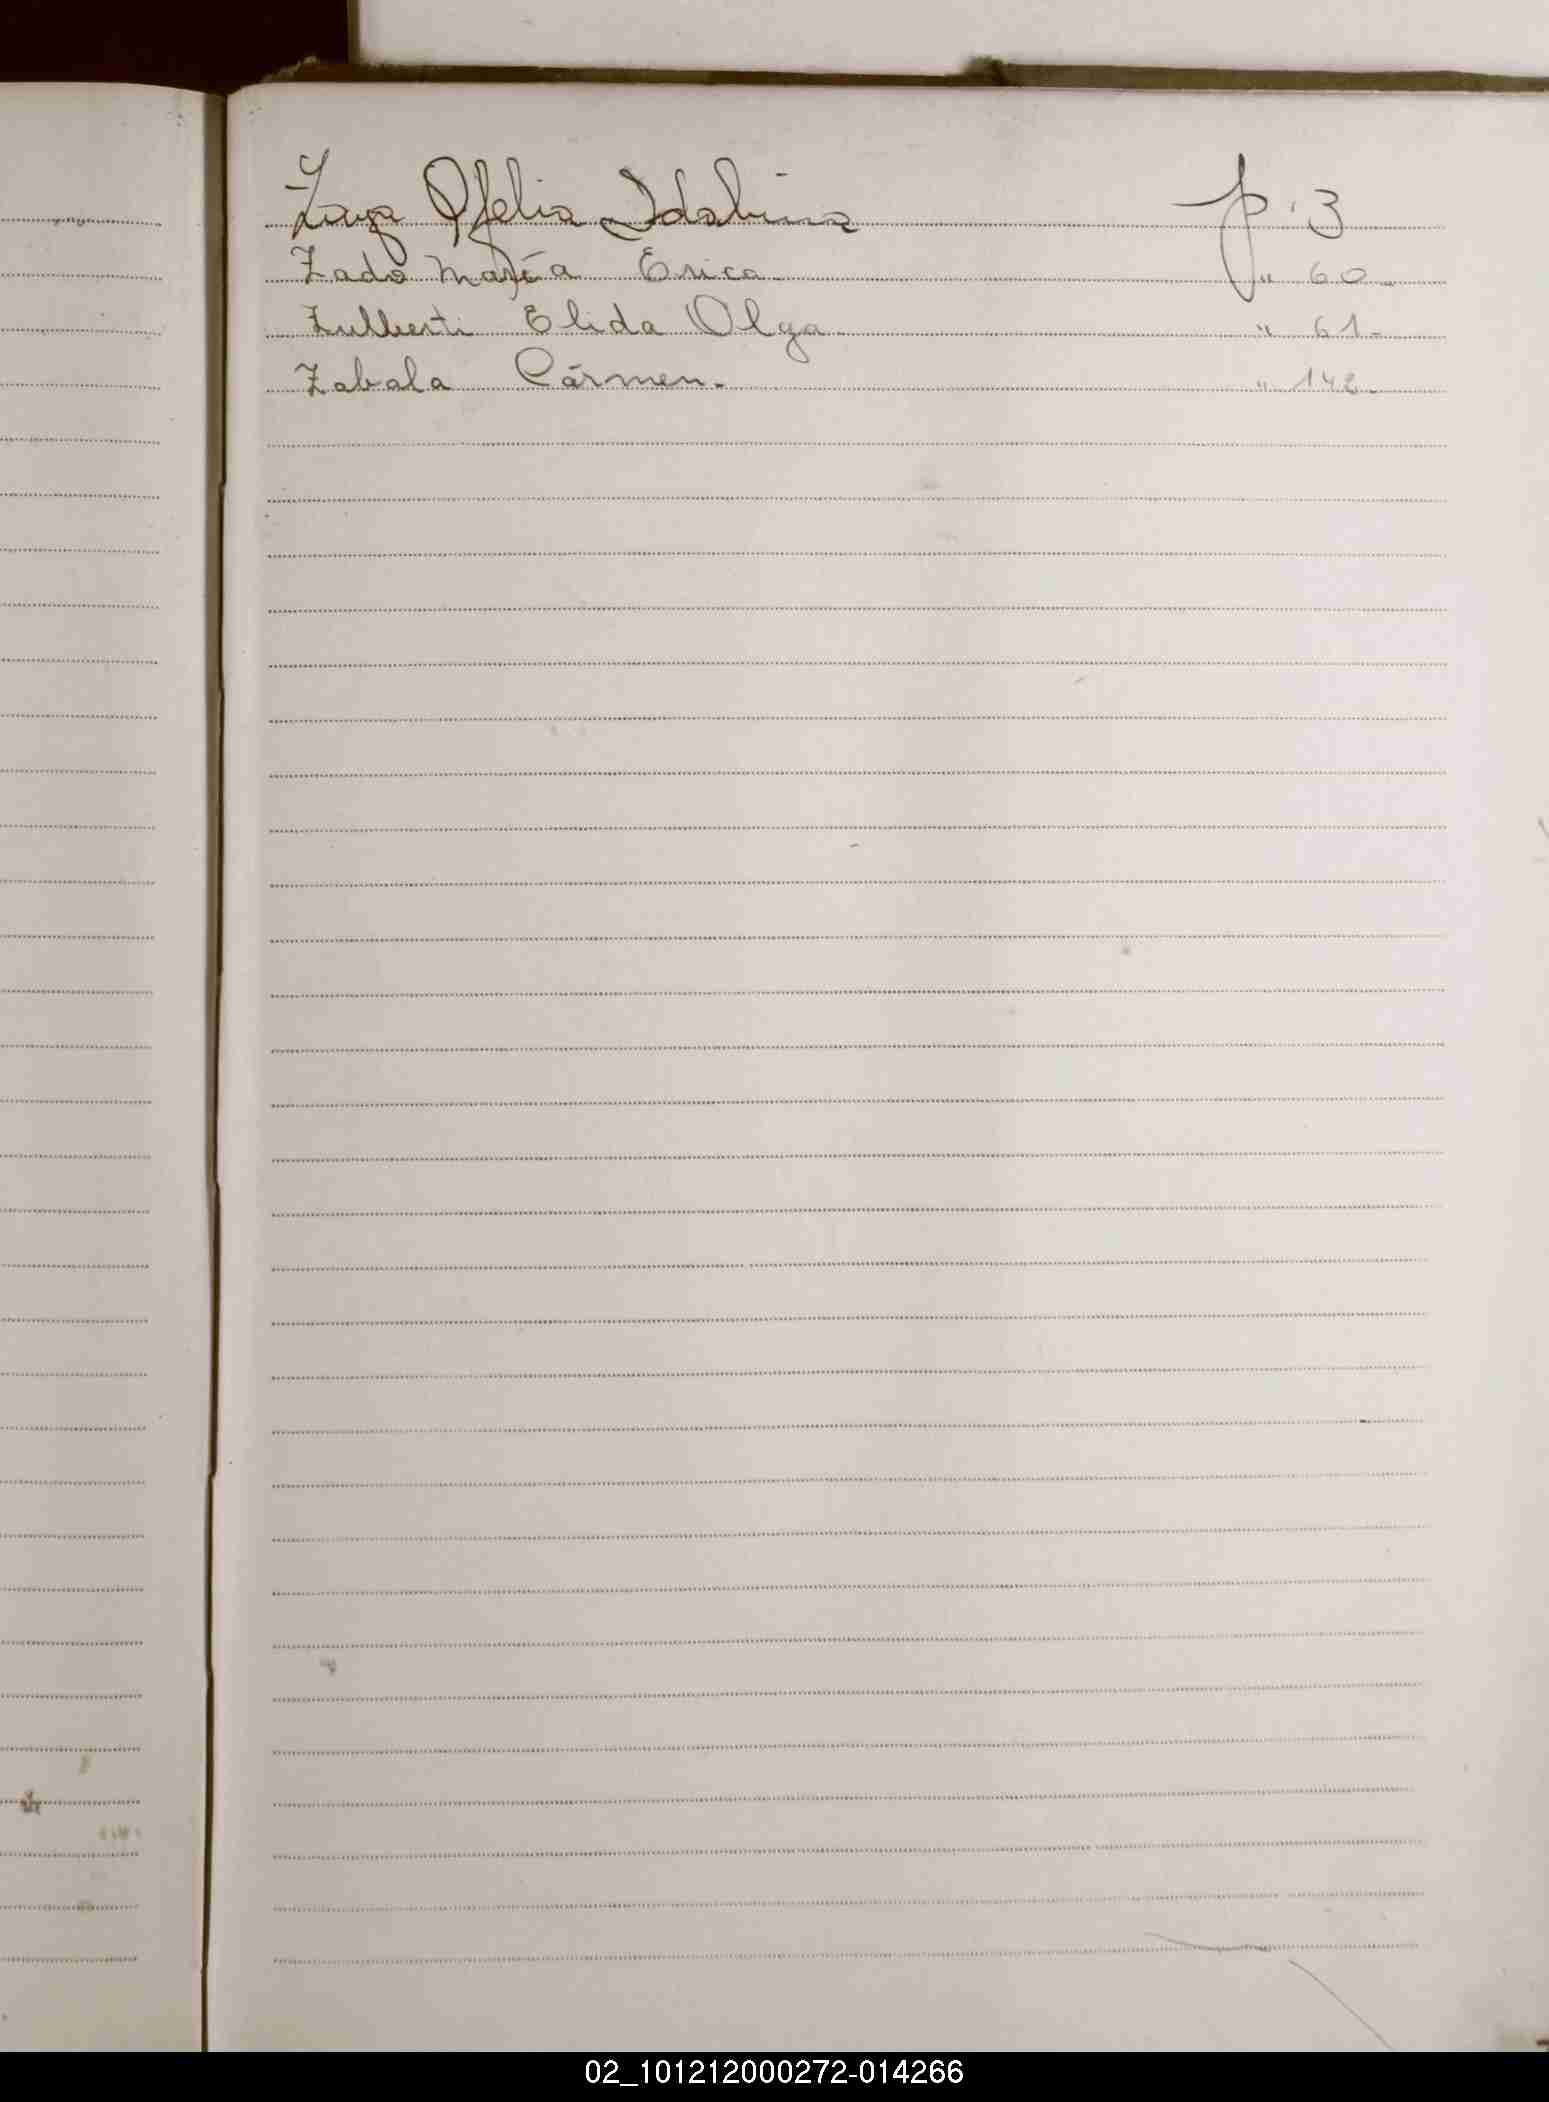 Zaya Ofelia Idalina p. 3
Zado María Erica " 60-
Zulberti Elida Olga " 61-
Zabala Cármen. " 142-
02_101212000272-014266